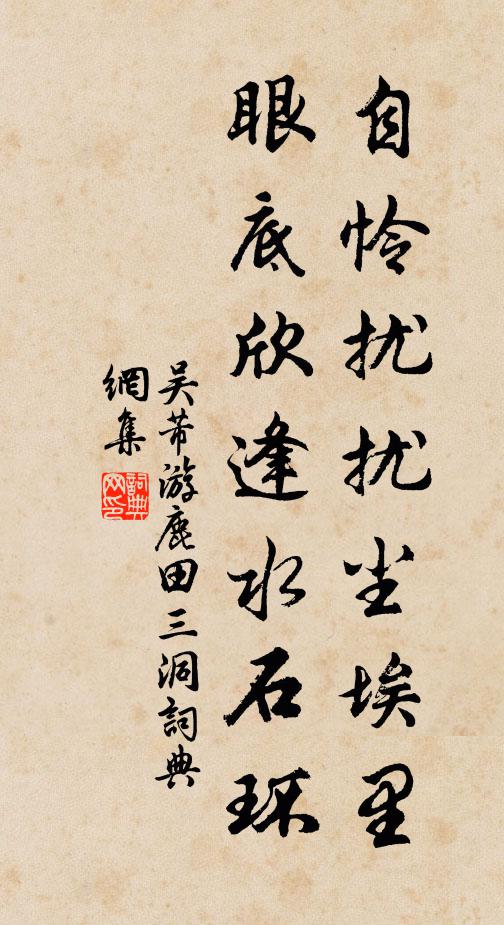 自怜扰扰尘埃里
眼底欣逢水石环
吴芾游鹿田三洞詞典
網集
詞典
网印